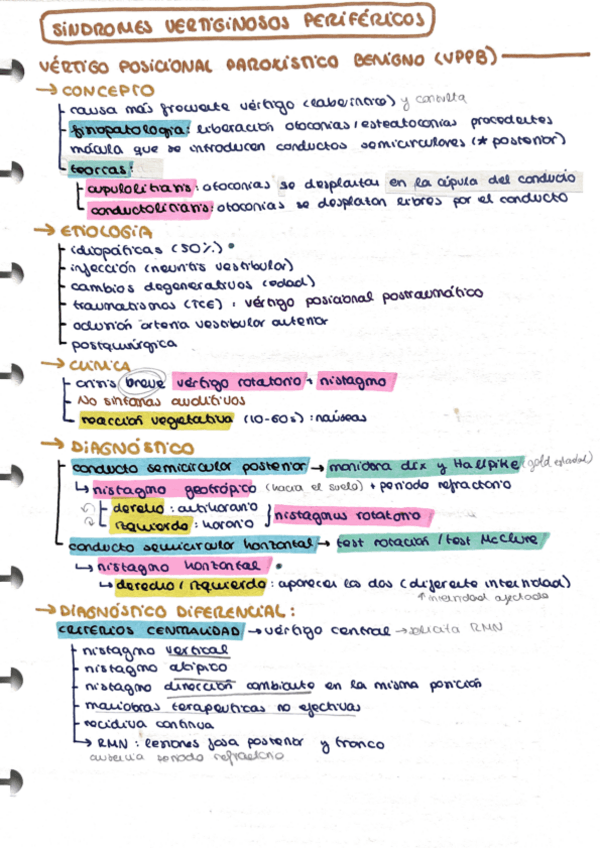 SÍNDROMES VERTIGINOSOS PERIFÉRICOS
VÉRTIGO POSICIONAL PAROXÍSTICO BENIGNO (VPPB)
→ CONCEPTO
- causa más frecuente vértigo (laberíntico) y consulta
- fisiopatología: liberación otoconias / esteatoconias procedentes
mácula que se introducen conductos semicirculares (* posterior)
- teorías:
- cupulolitiasis: otoconias se desplazan en la cúpula del conducto
- conductolitiasis: otoconias se desplazan libres por el conducto
→ ETIOLOGÍA
- idiopáticas (50%) •
- infección (neuritis vestibular)
- cambios degenerativos (edad)
- traumatismos (TCE) : vértigo posicional postraumático
- oclusión arteria vestibular anterior
- postquirúrgica
→ CLÍNICA
- crisis breve vértigo rotatorio + nistagmo
- No síntomas auditivos
- reacción vegetativa (10-60s) : náuseas
→ DIAGNÓSTICO
- conducto semicircular posterior → maniobra dix y Hallpike (gold estándar)
↳ nistagmo geotrópico (hacia el suelo) + periodo refractario
- derecho : antihorario
- izquierdo : horario } nistagmus rotatorio
- conducto semicircular horizontal → test rotación / test McClure
↳ nistagmo horizontal •
↳ derecho / izquierdo : aparecen los dos (diferente intensidad)
↑ intensidad afectado
→ DIAGNÓSTICO DIFERENCIAL :
CRITERIOS CENTRALIDAD → vértigo central → solicita RMN
- nistagmo vertical
- nistagmo atípico
- nistagmo dirección cambiante en la misma posición
- maniobras terapeuticas no efectivas
- recidiva continua
↳ RMN : lesiones fosa posterior y tronco
ausencia periodo refractario